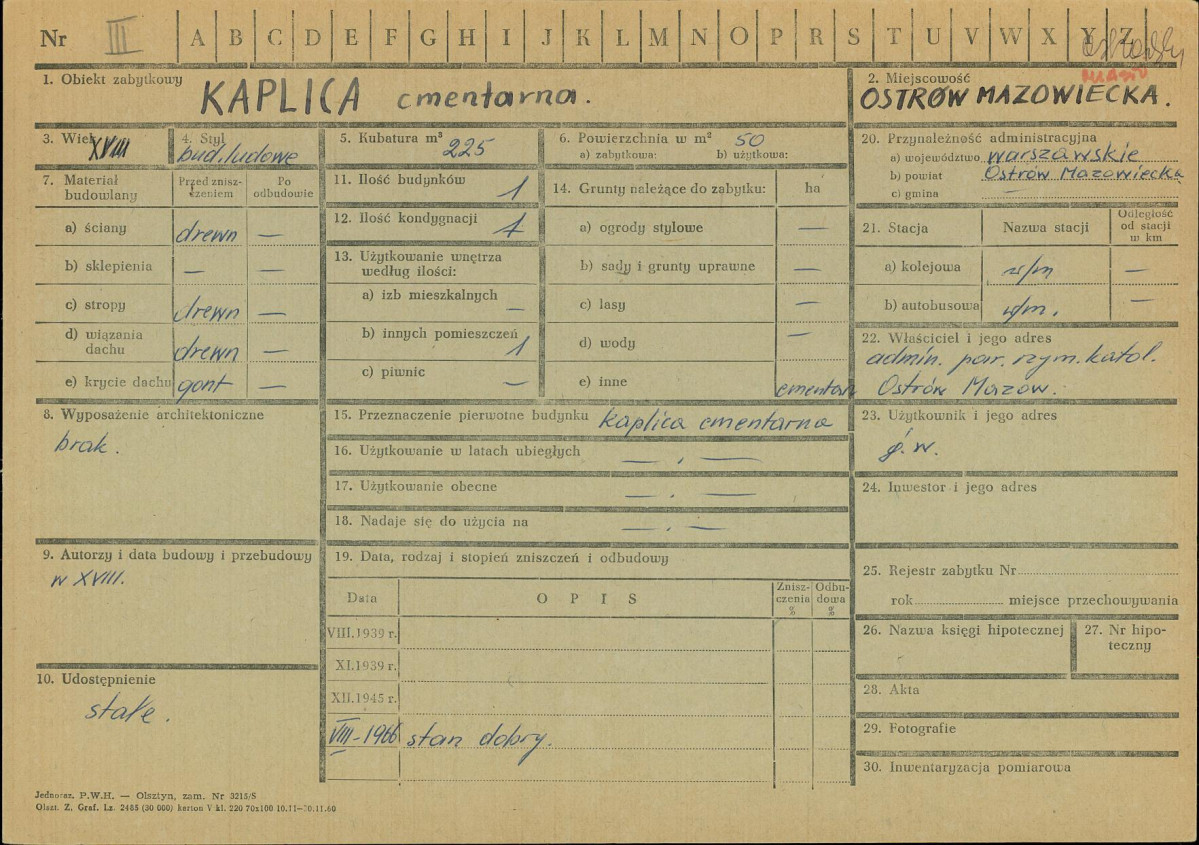 Nr III A B C D E F G H I J K L M N O P R S T U V W X Y Z
1. Obiekt zabytkowy KAPLICA cmentarna.
2. Miejscowość miasto
OSTRÓW MAZOWIECKA.
3. Wiek XVIII
4. Styl bud. ludowe
5. Kubatura m³ 225
6. Powierzchnia w m² 50
a) zabytkowa: b) użytkowa:
20. Przynależność administracyjna
a) województwo warszawskie
b) powiat Ostrów Mazowiecka
c) gmina —
7. Materiał budowlany
Przed zniszczeniem
Po odbudowie
a) ściany drewn —
b) sklepienia — —
c) stropy drewn —
d) wiązania dachu drewn —
e) krycie dachu gont —
11. Ilość budynków 1
12. Ilość kondygnacji 1
13. Użytkowanie wnętrza
według ilości:
a) izb mieszkalnych —
b) innych pomieszczeń 1
c) piwnic —
14. Grunty należące do zabytku: ha
a) ogrody stylowe —
b) sady i grunty uprawne —
c) lasy —
d) wody —
e) inne cmentarz
21. Stacja Nazwa stacji Odległość od stacji w km
a) kolejowa w/m —
b) autobusowa w/m. —
22. Właściciel i jego adres
admin. par. rzym. katol.
Ostrów Mazow.
8. Wyposażenie architektoniczne
brak.
15. Przeznaczenie pierwotne budynku kaplica cmentarna
16. Użytkowanie w latach ubiegłych — . —
17. Użytkowanie obecne — . —
18. Nadaje się do użycia na — . —
23. Użytkownik i jego adres
j.w.
24. Inwestor i jego adres
9. Autorzy i data budowy i przebudowy
w XVIII.
19. Data, rodzaj i stopień zniszczeń i odbudowy
Data OPIS Zniszczenia % Odbudowa %
VIII.1939 r.
XI.1939 r.
XII.1945 r.
VIII-1966 stan dobry.
25. Rejestr zabytku Nr
rok miejsce przechowywania
26. Nazwa księgi hipotecznej
27. Nr hipoteczny
10. Udostępnienie
stałe.
28. Akta
29. Fotografie
30. Inwentaryzacja pomiarowa
Jednoraz. P.W.H. — Olsztyn, zam. Nr 3215/S
Olszt. Z. Graf. Lz. 2485 (30 000) karton V kl. 220 70x100 10.11—30.11.60